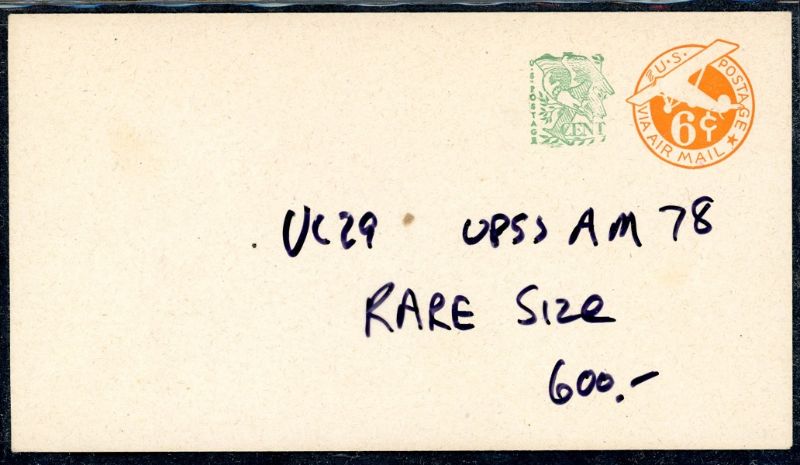 U.S. POSTAGE
CENT
U.S. POSTAGE
6¢
VIA AIR MAIL
UC29 UPSS AM 78
RARE Size
600.-